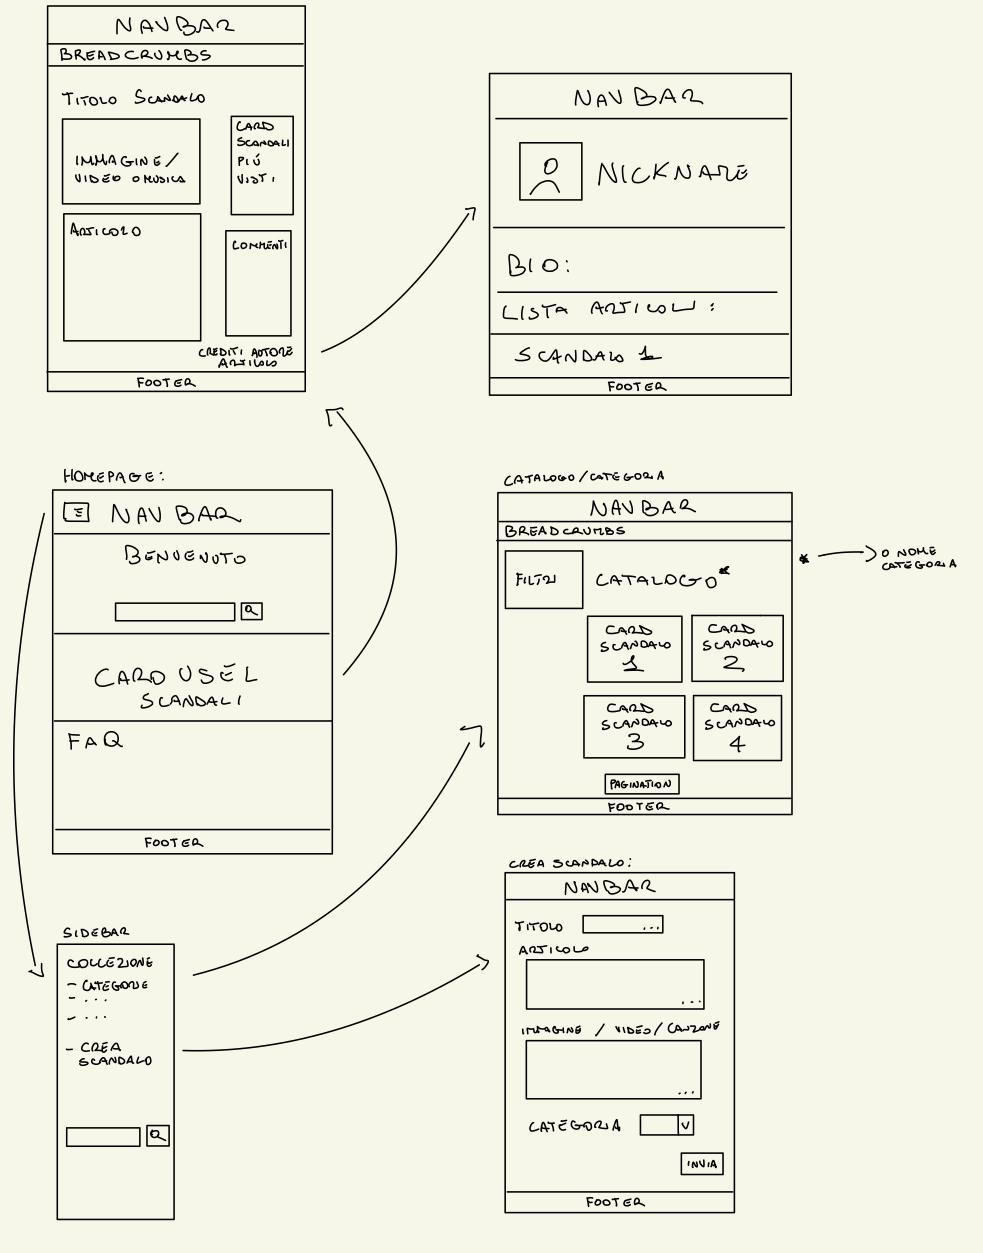 NAVBAR
BREADCRUMBS
TITOLO SCANDALO
IMMAGINE/
VIDEO O MUSICA
CARD
SCANDALI
PIÚ
VISTI
ARTICOLO
COMMENTI
CREDITI AUTORE
ARTICOLO
FOOTER
NAVBAR
NICKNAME
BIO:
LISTA ARTICOLI:
SCANDALO 1
FOOTER
HOMEPAGE:
NAVBAR
BENVENUTO
CAROUSEL
SCANDALI
FAQ
FOOTER
CATALOGO/CATEGORIA
NAVBAR
BREADCRUMBS
FILTRI
CATALOGO*
CARD
SCANDALO
1
CARD
SCANDALO
2
CARD
SCANDALO
3
CARD
SCANDALO
4
PAGINATION
FOOTER
* O NOME
CATEGORIA
SIDEBAR
COLLEZIONE
- CATEGORIE
- ...
- ...
- CREA
SCANDALO
CREA SCANDALO:
NAVBAR
TITOLO ...
ARTICOLO
...
IMMAGINE / VIDEO/CANZONE
...
CATEGORIA V
INVIA
FOOTER